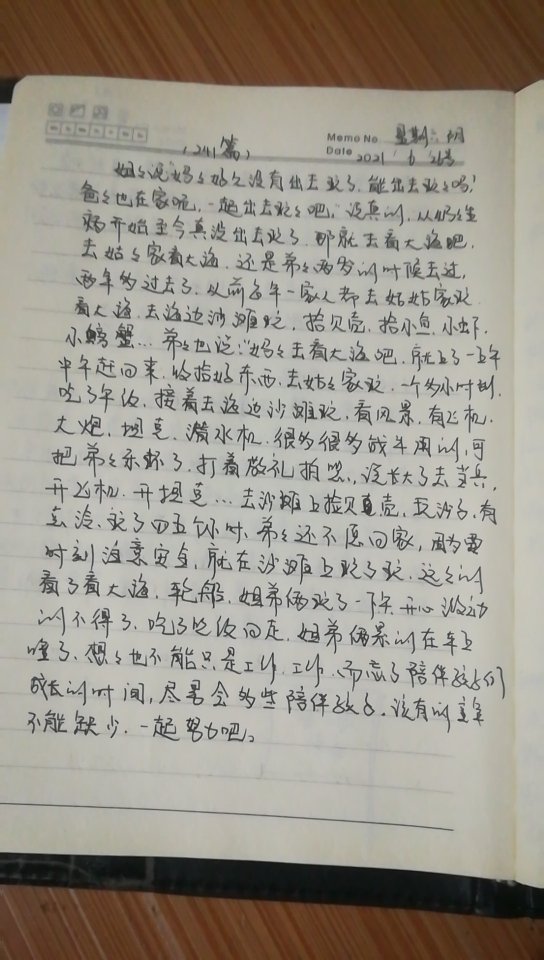 Memo No. 星期六 阴
Date 2021 6 26号
(241篇)
姐々说"妈々好久没有出去玩了,能出去玩々吗?
爸々也在家呢,一起出去玩々吧,"没真的,从
病开始至今真没出去玩了,那就去看大海吧,
去姑々家看大海,还是弟々两岁的时候去过,
两年多过去了,以前每年一家人都去姑姑家玩,
看大海,去海边沙滩玩,拾贝壳,拾小鱼,小虾,
小螃蟹…弟々也说:"妈々去看大海吧,就
中午赶回来,收拾好东西,去姑々家玩,一个多小时到,
吃了午饭,接着去海边沙滩玩,看风景,有飞机,
大炮,坦克,潜水机,很多很多战斗用的,可
把弟々乐坏了,打着敬礼拍照,说长大了去当兵,
开飞机,开坦克…去沙滩上捡贝壳,玩沙子,有
点冷,玩了四五个小时,弟々还不愿回家,因为要
时刻注意安全,就在沙滩上玩了玩,远々的
看了看大海,轮船,姐弟俩玩了一下午,开心激动
的不得了,吃了晚饭回走,姐弟俩累的在车上
睡了,想々也不能只是工作,工作,而忘了陪伴孩子们
成长的时间,尽量会多些陪伴孩子,该有的童年
不能缺少,一起努力吧。